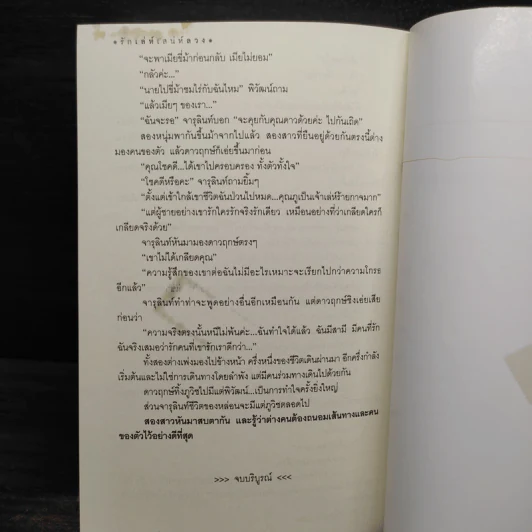 ★รักเล่ห์เสน่ห์ลวง★
"จะพาเมียขี่ม้าก่อนกลับ เมียไม่ยอม"
"กลัวค่ะ..."
"นายไปขี่ม้าชมไร่กับฉันไหม" พิวัฒน์ถาม
"แล้วเมียๆ ของเรา..."
"ฉันจะรอ" จารุลินท์บอก "จะคุยกับคุณดาวด้วยค่ะ ไปกันเถิด"
สองหนุ่มพากันขึ้นม้าจากไปแล้ว สองสาวที่ยืนอยู่ด้วยกันตรงนี้ต่าง
มองคนของตัว แล้วดาวฤกษ์ก็เอ่ยขึ้นมาก่อน
"คุณโชคดี...ได้เขาไปครอบครอง ทั้งตัวทั้งใจ"
"โชคดีหรือคะ" จารุลินท์ถามยิ้มๆ
"ตั้งแต่เข้าใกล้เขาชีวิตฉันป่วนไปหมด...คุณภูเป็นเจ้าเล่ห์ร้ายกาจมาก"
"แต่ผู้ชายอย่างเขารักใครรักจริงรักเดียว เหมือนอย่างที่ว่าเกลียดใครก็
เกลียดจริงด้วย"
จารุลินท์หันมามองดาวฤกษ์ตรงๆ
"เขาไม่ได้เกลียดคุณ"
"ความรู้สึกของเขาต่อฉันไม่มีอะไรเหมาะจะเรียกไปกว่าความโกรธ
อีกแล้ว"
จารุลินท์ทำท่าจะพูดอย่างอื่นอีกเหมือนกัน แต่ดาวฤกษ์ชิงเอ่ยเสีย
ก่อนว่า
"ความจริงตรงนั้นหนีไม่พ้นค่ะ...ฉันทำใจได้แล้ว ฉันมีสามี มีคนที่รัก
ฉันจริงเสมอว่ารักคนที่เขารักเราดีกว่า..."
ทั้งสองต่างเพ่งมองไปข้างหน้า ครึ่งหนึ่งของชีวิตเดินผ่านมา อีกครึ่งกำลัง
เริ่มต้นและไม่ใช่การเดินทางโดยลำพัง แต่มีคนร่วมทางเดินไปด้วยกัน
ดาวฤกษ์ทิ้งภูวิชไปมีแต่พิวัฒน์...เป็นการทำใจครั้งยิ่งใหญ่
ส่วนจารุลินท์ชีวิตของหล่อนจะมีแต่ภูวิชตลอดไป
สองสาวหันมาสบตากัน และรู้ว่าต่างคนต้องถนอมเส้นทางและคน
ของตัวไว้อย่างดีที่สุด
>>> จบบริบูรณ์ <<<